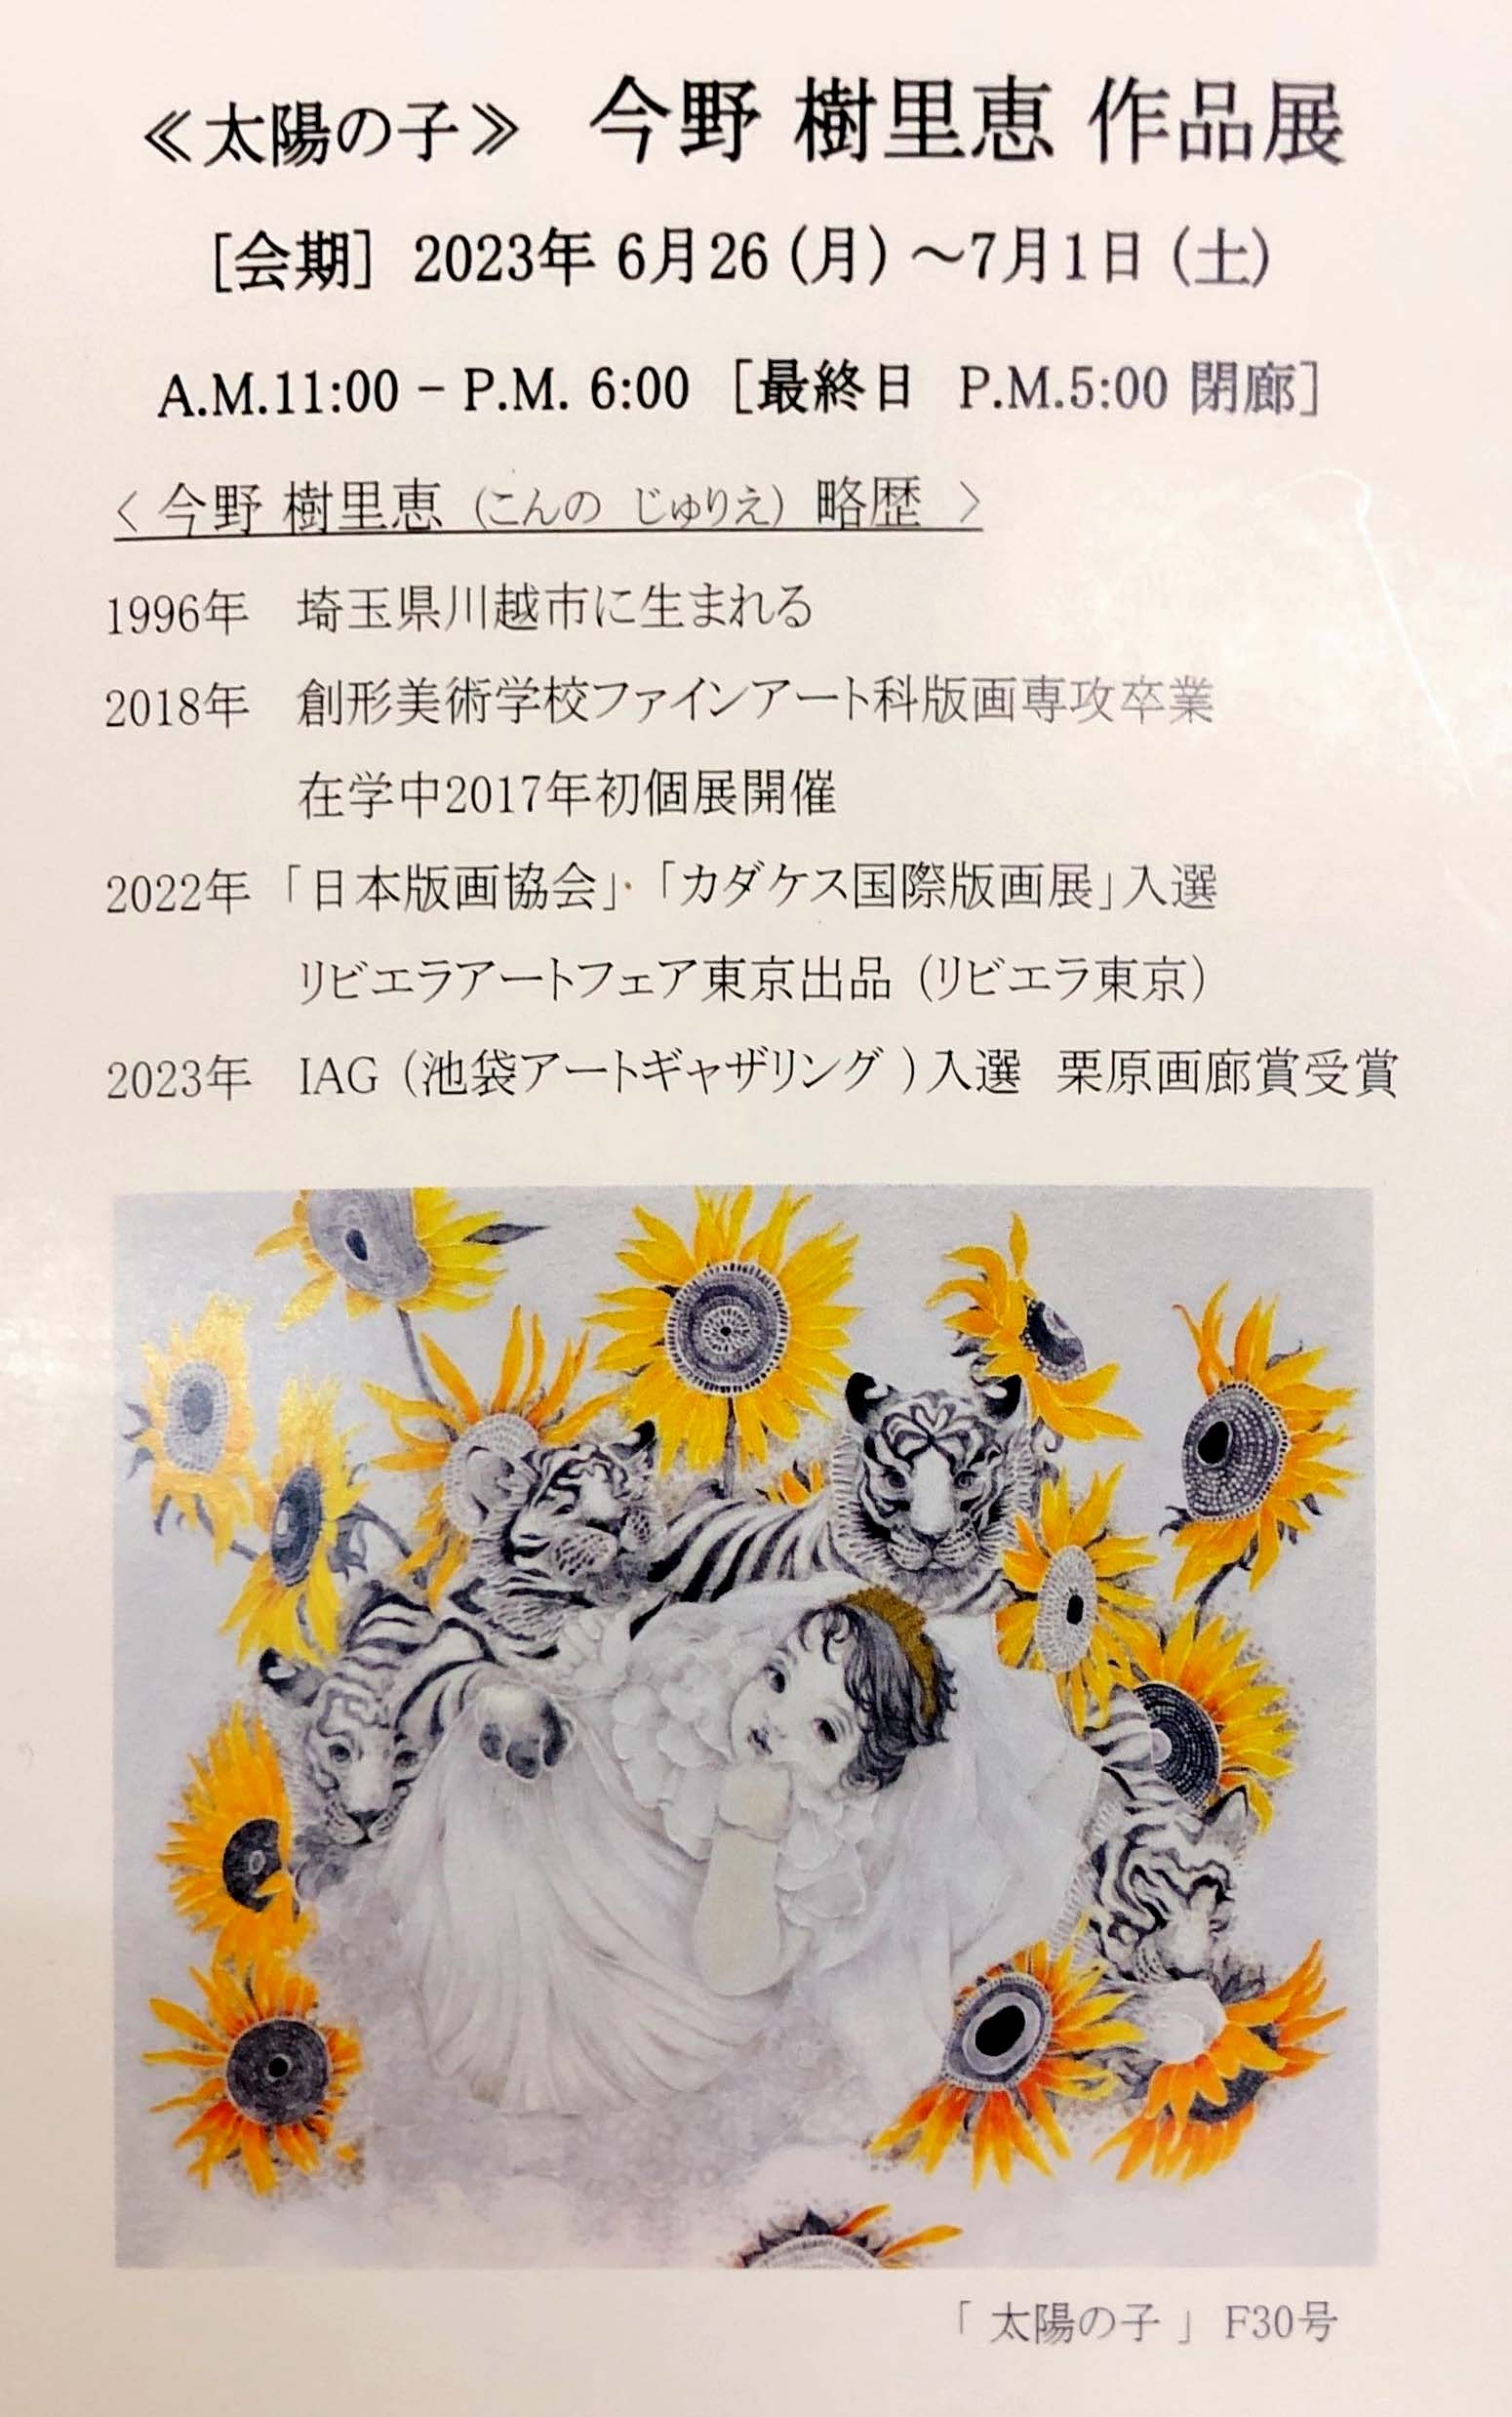 ≪太陽の子≫ 今野 樹里恵 作品展
［会期］ 2023年 6月26（月）～7月1日（土）
A.M.11:00 − P.M. 6:00 ［最終日 P.M.5:00 閉廊］
〈 今野 樹里恵（こんの じゅりえ）略歴 〉
1996年 埼玉県川越市に生まれる
2018年 創形美術学校ファインアート科版画専攻卒業
在学中2017年初個展開催
2022年 「日本版画協会」・「カダケス国際版画展」入選
リビエラアートフェア東京出品（リビエラ東京）
2023年 IAG（池袋アートギャザリング）入選 栗原画廊賞受賞
「 太陽の子 」 F30号